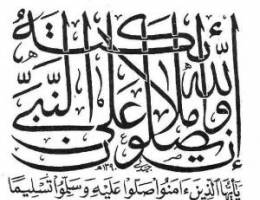 إن الله وملائكته يصلون على النبي
يَٰأَيُّهَا الَّذِينَ ءَامَنُوا صَلُّوا عَلَيْهِ وَسَلِّمُوا تَسْلِيمًا